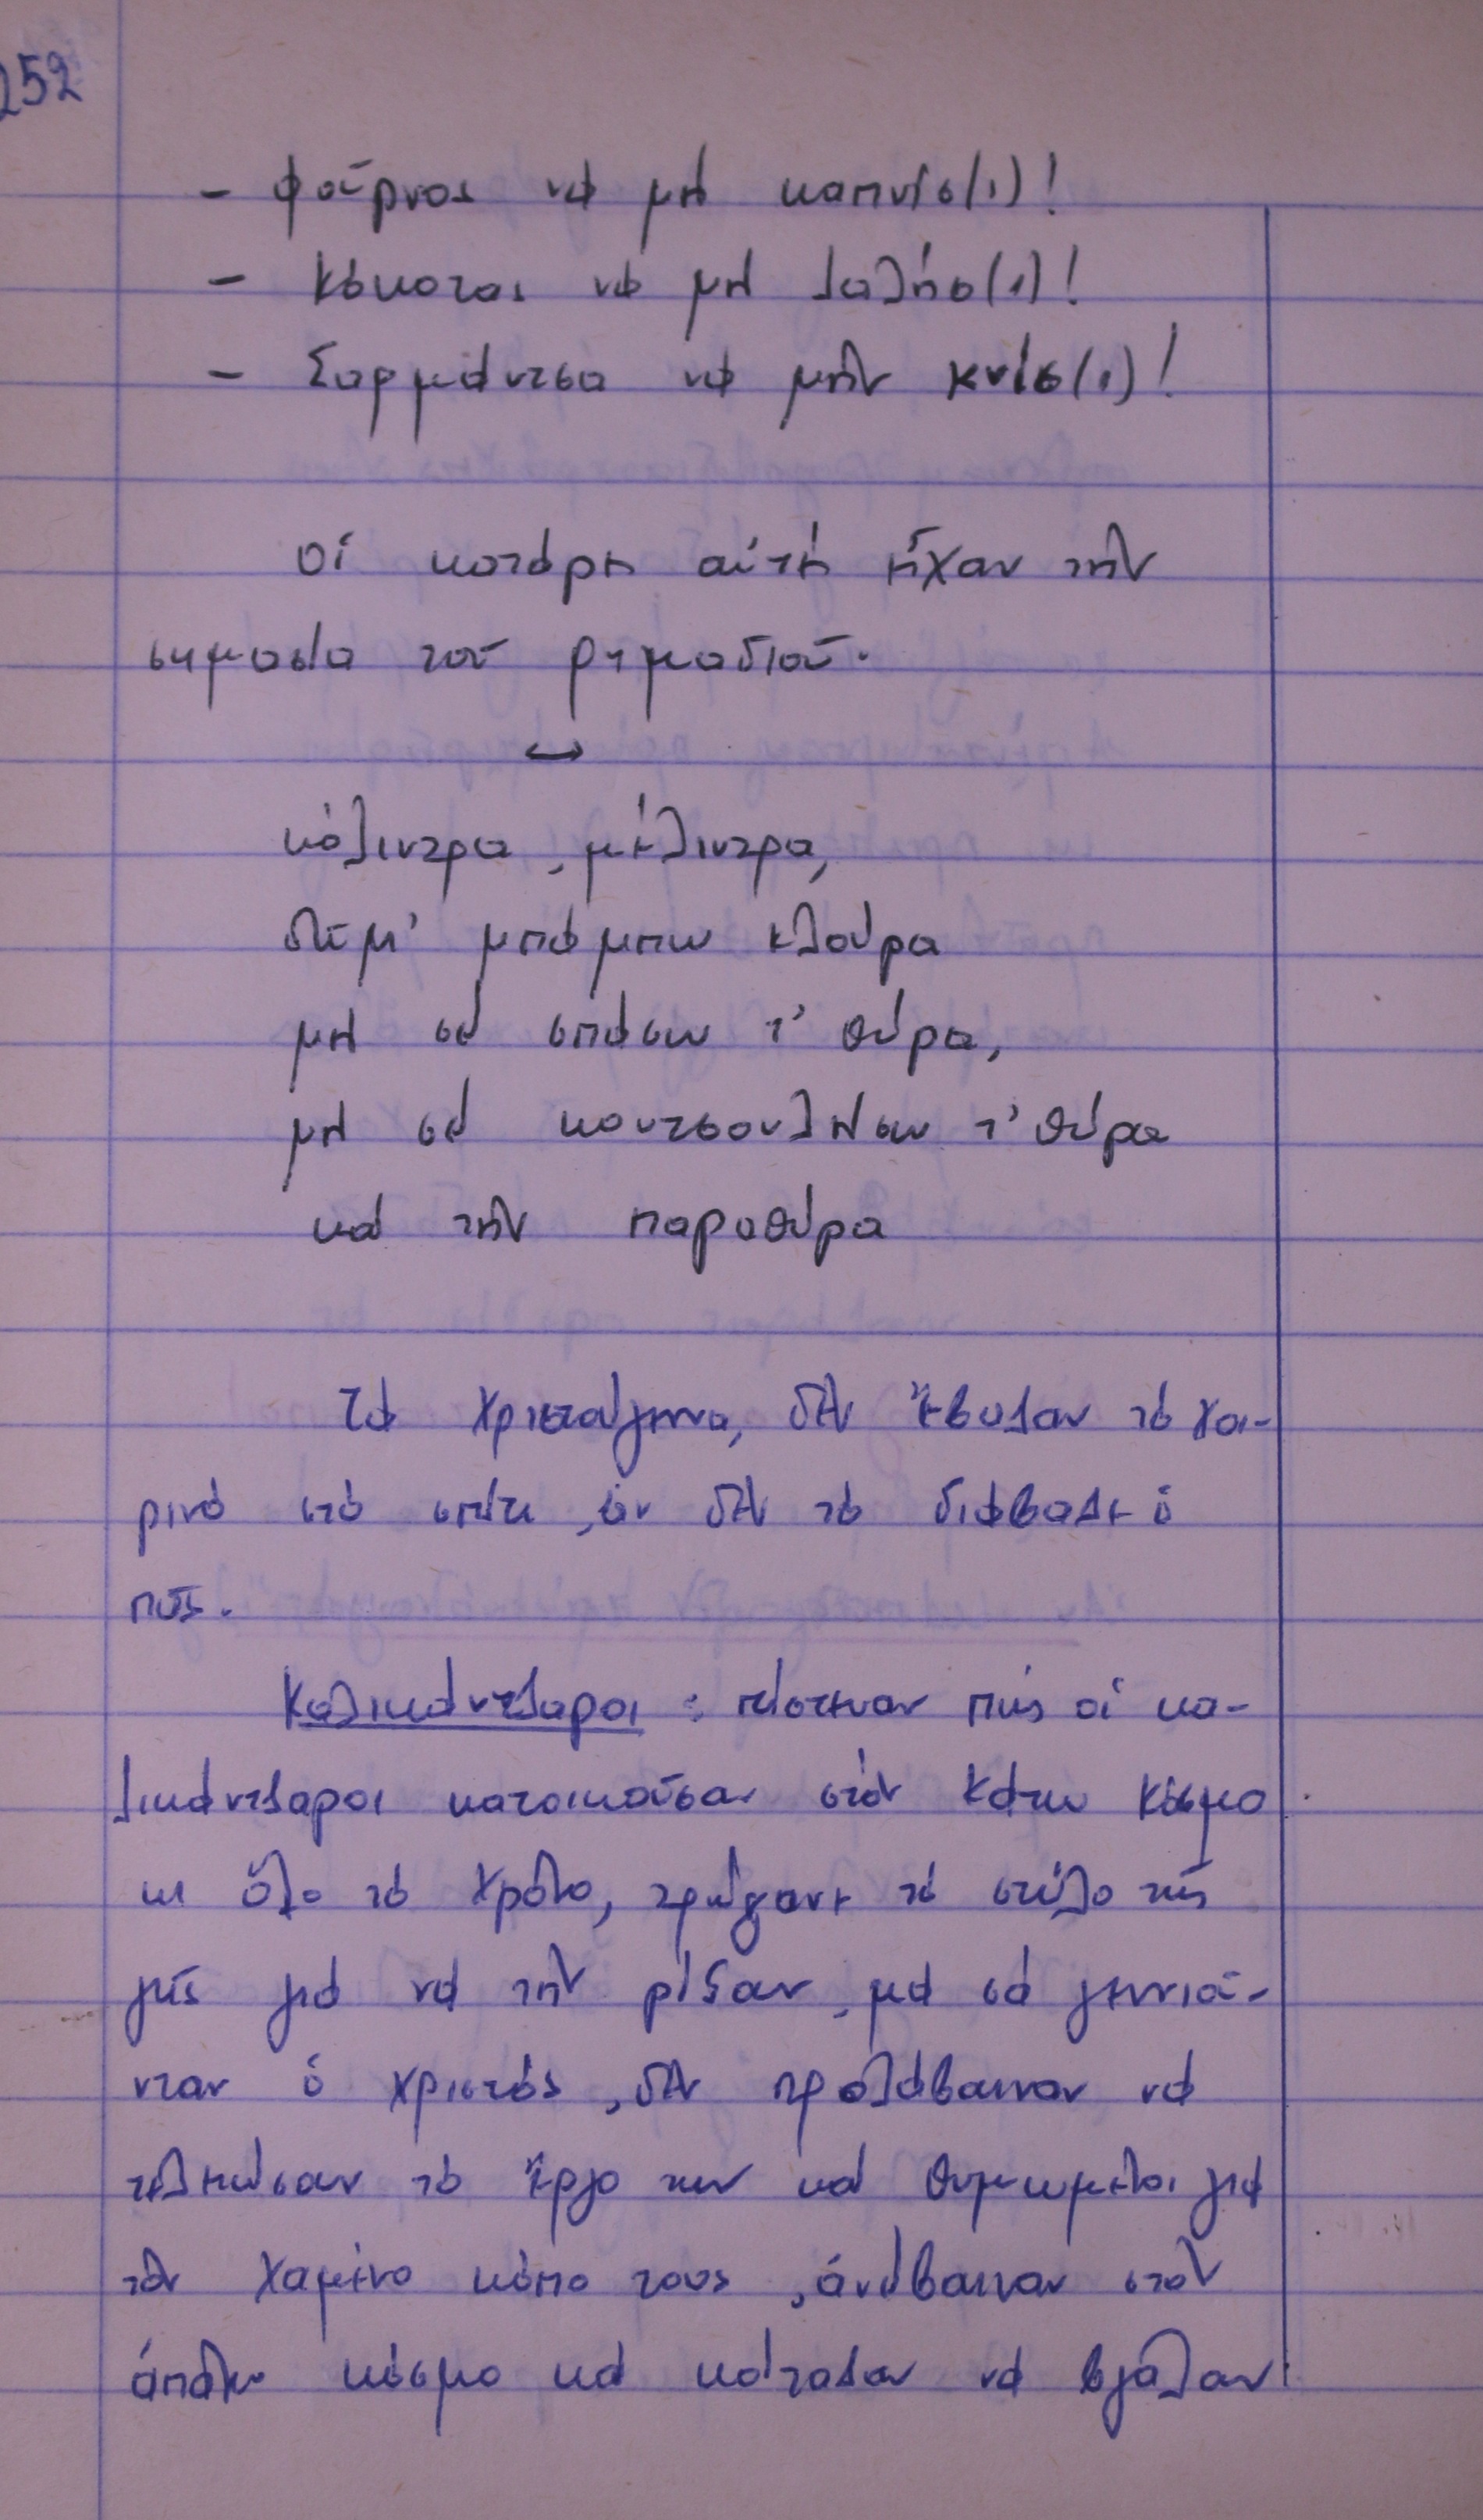 252
- Φούρνος νά μή καπνίσ(ι)!
- Κόκοτας νά μή λαλήσ(ι)!
- Σαρμάντσα νά μήν κνίσ(ι)!
Οἱ κατάρε αὐτέ εἶχαν τήν
σημασία τοῦ ρημαδιοῦ.
κόλιντρα, μέλιντρα,
δῶμ' μπάμπω κλούρα
μή σέ σπάσω τ' θύρα,
μή σέ κουτσουλήσω τ' θύρα
καί τήν παραθύρα
Τά Χριστούγεννα, δέν ἔβαλαν τό χοι-
ρινό στό σπίτι, ἄν δέν τό διάβαζε ὁ
πᾶς.
Καλικάντζαροι : πίστευαν πώς οἱ κα-
λικάντζαροι κατοικοῦσαν στόν κάτω κόσμο
κι ὅλο τό χρόνο, τρώγανε τό στύλο τῆς
γῆς γιά νά τήν ρίξαν, μά σά γεννιό-
νταν ὁ Χριστός, δέν προλάβαιναν νά
τελειώσαν τό ἔργο των καί θυμωμένοι γιά
τόν χαμένο κόπο τους, ἀνέβαιναν στόν
ἀπάνω κόσμο καί κάταζαν νά βγάλαν